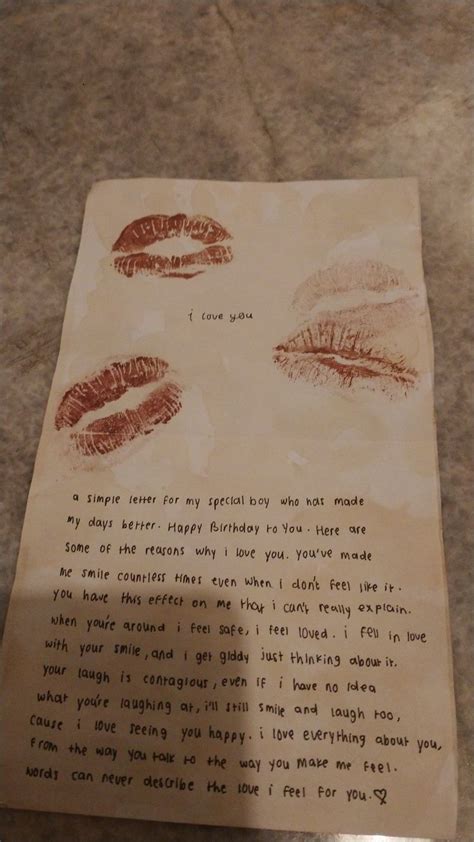 i love you
a simple letter for my special boy who has made
my days better. Happy Birthday to You. Here are
some of the reasons why i love you. you've made
me smile countless times even when I don't feel like it.
you have this effect on me that i can't really explain.
when you're around i feel safe, i feel loved. i fell in love
with your smile, and i get giddy just thinking about it.
your laugh is contagious, even if i have no idea
what you're laughing at, i'll still smile and laugh too,
cause i love seeing you happy. i love everything about you,
from the way you talk to the way you make me feel.
words can never describe the love i feel for you.♡